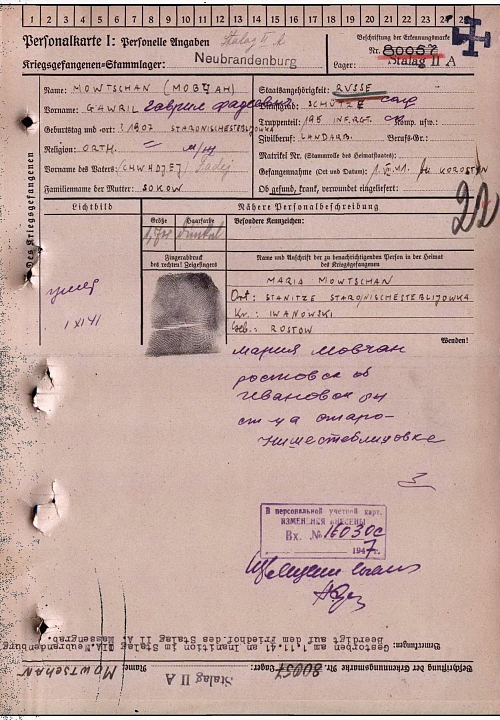 1 2 3 4 5 6 7 8 9 10 11 12 13 14 15 16 17 18 19 20 21 22 23 24 25
Personalkarte I: Personelle Angaben Stalag II A
Kriegsgefangenen-Stammlager: Neubrandenburg
Beschriftung der Erkennungsmarke
Nr. 80057
Lager: Stalag II A
Name: MOWTSCHAN (МОВЧАН)
Vorname: GAWRIL Гаврил
Geburtstag und -ort: ? 1907 STARONISCHESTEBLIJOWKA
Religion: ORTH.
Vorname des Vaters:
Familienname der Mutter: SOKOW
Staatsangehörigkeit: RUSSE
Dienstgrad: SCHÜTZE
Truppenteil: 195 INF.RGT. Komp. usw.:
Zivilberuf: LANDARB. Berufs-Gr.:
Matrikel Nr. (Stammrolle des Heimatstaates):
Gefangennahme (Ort und Datum): KOROSTEN
Ob gesund, krank, verwundet eingeliefert:
22
Des Kriegsgefangenen
Lichtbild
Nähere Personalbeschreibung
Größe Haarfarbe Besondere Kennzeichen:
dunkel
Fingerabdruck
des rechten! Zeigefingers
Name und Anschrift der zu benachrichtigenden Person in der Heimat
des Kriegsgefangenen
MARIA MOWTSCHAN
Ort: STANITZE STARONISCHESTEBLIJOWKA
Kr.: IWANOWSKI
Geb.: ROSTOW
Wenden!
умер
1 XI 41
Мария Мовчан
В персональной учетной карт.
ИЗМЕНЕНИЯ ВНЕСЕНЫ
Вх. № 16030с
1947 г.
Bemerkungen: Gestorben am 1.11.41 an Inanition im Stalag IIA. Neubrandenburg
Beerdigt auf dem Friedhof des Stalag II A, Massengrab.
Name: MOWTSCHAN
Beschriftung der Erkennungsmarke Nr. 80057 Lager: Stalag II A